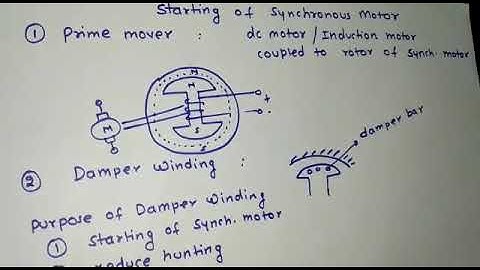 Starting of Synchronous Motor
① Prime mover : dc motor / Induction motor
coupled to rotor of synch. motor
N
N
M
S
S
+
-
damper bar
② Damper Winding :
Purpose of Damper Winding
① Starting of Synch. motor
hunting